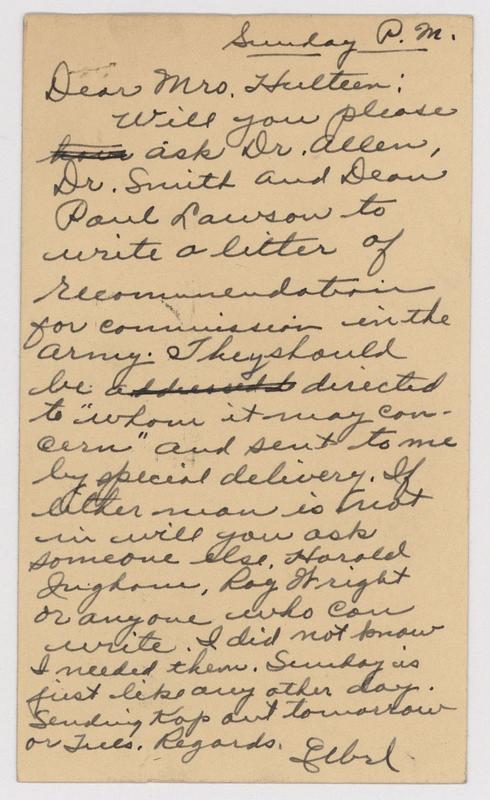 Sunday P.M.
Dear Mrs. Hulteen:
Will you please
have ask Dr. Allen,
Dr. Smith and Dean
Paul Lawson to
write a letter of
recommendation
for commission in the
army. They should
be addressed directed
to "whom it may con-
cern" and sent to me
by special delivery. If
either man is not
in will you ask
someone else, Harold
Ingham, Ray Wright
or anyone who can
write. I did not know
I needed them. Sunday is
just like any other day.
Sending Kap out tomorrow
or Tues. Regards.
Elbel